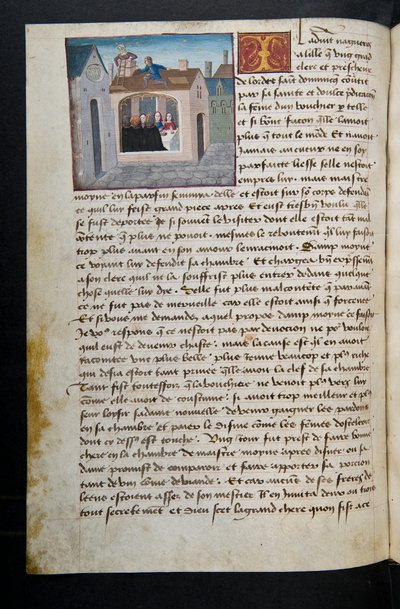 Il advint nagueres
a lille que ung grand
clerc et prescheur
de lordre saint dominicq covertit
par sa sainte et doulce predicacion
la feme dun bouchier p telle
et si bone facon quelle lamoit
plus que tout le mode Et navoit
Jamais au cueur ne en soy
parfaicte liesse selle nestoit
empres luy. mais maistre
moyne en la parfin sennuya delle et
ce quil luy fist grand piece apres Et eust tresbn voulu qlle
se fust deportee de si souvent le visiter dont elle estoit tant mal
cotente que plus ne pouoit. mesmes le reboutemet quil luy faisoit
trop plus avant en son amour lenracinoit. Damp moyne
ce voyant luy defendit sa chambre Et chargea bn expssemet
a son clerc quil ne la souffrist plus entrer dedans quelque
chose quelle luy die. Selle fut plus malcotete que par avant
ce ne fut pas de merveille car elle estoit ainsi que forcenee
Et si vous me demandez a quel propos damp moyne ce faisoit
Je vous respons que ce nestoit pas par devocion ne por vouloir
quil eust de devenir chaste. mais la cause est quil en avoit
racointee une plus belle plus jeune beaucop et plus riche
qui desia estoit tant privee quelle avoit la clef de sa chambre
Tant fist toutesfois que la bouchiere ne venoit plus vers luy
come elle avoit de coustume. si avoit trop meilleur et plus
seur loysir sa dame nouvelle de venir gaigner les pardons
en sa chambre et paier le disme come les femes dostelerie
dont cy dessus est touche. Ung iour fut prest de faire bonne
chere en la chambre de maistre moyne apres disner ou sa
dame promist de comparoir et faire apporter sa porcion
tant de vin come de viande. Et car aucuns de ses freres de
leens estoient assez de son mestier Il en invita deux ou trois
tout secretemet et Dieu scet la grand chere quon fist ace